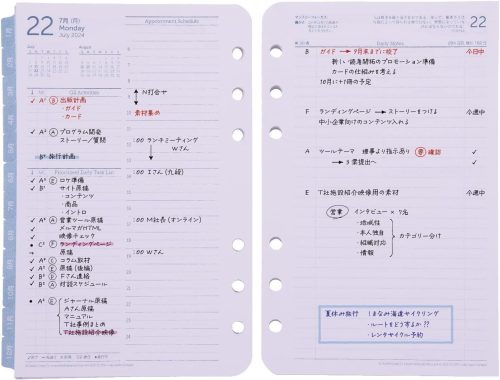 22
7月 (月)
Monday
July 2024
Appointment Schedule
Q2 Activities
✓ A² Ⓑ 出版計画
・ガイド
・カード
✓ A³ Ⓐ プログラム開発
ストーリー/質問
B⁵ 旅行計画
Prioritized Daily Task List
✓ A¹ Ⓔ ロケ準備
✓ B² サイト原稿
・コンテンツ
・商品
・イントロ
✓ A⁴ Ⓐ 営業ツール原稿
✓ B¹ メルマガHTML
✓ 映像チェック
C² Ⓕ ランディングページ
原稿
✓ C¹ Ⓔ コラム取材
✓ B³ Ⓔ 原稿(後編)
✓ B⁴ Ⓕ Fさん連絡
✓ B² Ⓐ 対談スケジュール
A⁶ Ⓔ ジャーナル原稿
Aさん原稿
マニュアル
T社事例まとめ
T社施設紹介映像
8
9
N打合せ
10
素材集め
11
:00 ランチミーティング
Wさん
:00 Iさん(九段)
:00 M社長(オンライン)
:00 Wさん
1月
2月
3月
4月
5月
6月
7月
8月
9月
10月
11月
12月
22
Daily Notes
B ガイド → 9月末までに校了 今日中
新しい読者開拓のプロモーション準備
カードの仕組みを考える
10月に+1冊の予定
F ランディングページ → ストーリーをつける 今週中
中小企業向けのコンテンツ入れる
A ツールテーマ 理事より指示あり 確認
→ 3案提出へ
E T社施設紹介映像用の素材 今週中
営業 インタビュー × 7名
・地域性
・本人独自
・組織対応
・情報
カテゴリー分け
夏休み旅行 しまなみ海道サイクリング
・ルートをどうするか??
・レンタサイクル予約